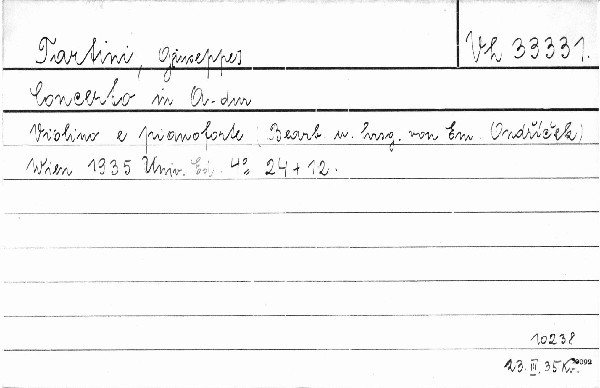 Tartini, Giuseppe
VL 33331.
Concerto in A-dur
Violino e pianoforte (Bearb. u. hrsg. von Em. Ondříček)
Wien 1935 Univ. Ed. 4° 24 + 12.
10238
23. III. 35 Kr. 39092